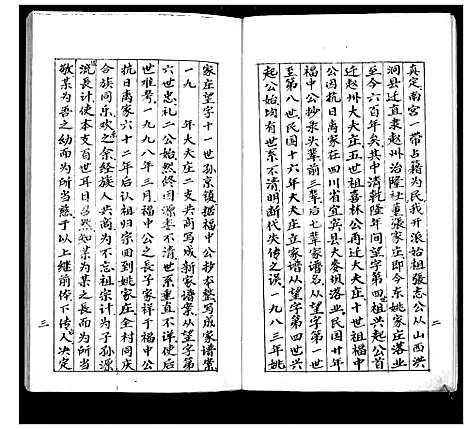 真定南宫一带占籍为民我开派始祖张志公从山西洪
洞县迁直隶赵州治隆社董张家庄即今东姚家庄落业
至今六百年矣其中清乾隆年间望字第四祖兴起公首
迁赵州大夫庄五世祖喜林公再迁大夫庄十世祖福中
公因抗日离家在四川省宜宾县大麥坝落业民国廿年
福中公抄录头辈前三辈后七辈家谱名从望字第一世
至第八世民国十六年大夫庄立家谱从望字第四世兴
起公始均有世系不清明断代失传之误一九八三年姚
二
家庄望字十一世孙京镇据福中公抄本整写成家谱案
一九 年大夫庄二支共商写成新家谱案从望字第
六世忠礼二公始然终因源本不清世系重直不详使后
世难考一九九八年三月福中公之长子家祥于福中公
抗日离家六十二年后认祖归宗回到姚家庄全村同庆
合族同乐欢之余经族人共商为不忘祖宗计为子孙源
流长计使本支百世耳日名然知某为之长而为所当
敬某为吾之幼而为所当慈于以上继前俾下传人决定
三